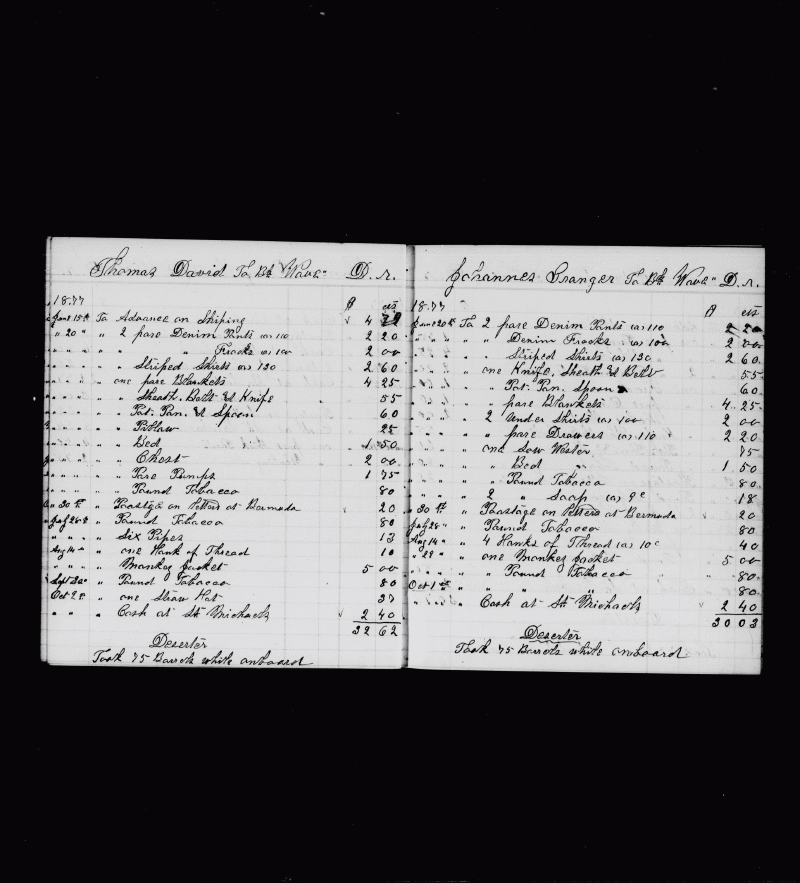 Thomas David To Bk Wave" D. r.
18.77 $ cts
June 15th To Advance on Shiping 4
" 20 " " 2 pare Denim Pants @ 110 2 20
" " " " " " Frocks @ 100 2 00
" " " " " Striped Shirts @ 130 2 60
" " " " one pare Blankets 4 25
" " " " " Sheath. Belt & Knife 55
" " " " " Pot. Pan. & Spoon 60
" " " " " Pillaw 25
" " " " " Bed 1 50
" " " " " Chest 2 00
" " " " " Pare Pumps 1 75
" " " " " Pound Tobacco 80
" 30th " Poastge on letters at Bermuda 20
July 28th " Pound Tobacco 80
" " " " Six Pipes 13
Aug 14 " " one Hank of Thread 10
" " " " Monkey Jacket 5 00
Sept " Pound Tobacco 80
Oct " one Straw Hat 37
" " " Cash at St. Michaels 2 40
32 62
Deserter
Took 75 Barrels while onboard
Johannes Granger To Bk Wave" D. r.
18.77 $ cts
June 20th To 2 pare Denim Pants @ 110 2 20
" " " " " Denim Frocks @ 100 2 00
" " " " " Striped Shirts @ 130 2 60
" " " " one Knife, Sheath & Belt 55
" " " " " Pot. Pan. Spoon 60
" " " " " pare Blankets 4 25
" " " " 2 Under Shirts @ 100 2 00
" " " " " pare Drawers @ 110 2 20
" " " " one Sow Wester 75
" " " " " Bed 1 50
" " " " " Pound Tobacco 80
" " " " 2 " Soap @ 9c 18
" 30th " Poastage on letters at Bermuda 20
July 28 " " Pound Tobacco 80
Aug 14 " " 4 Hanks of Thread @ 10c 40
" 29 " " one Monkey Jacket 5 00
" " " " " Pound Tobacco 80
Oct 1st " " " " 80
" " " Cash at St. Michaels 2 40
30 03
Deserter
Took 75 Barrels while onboard